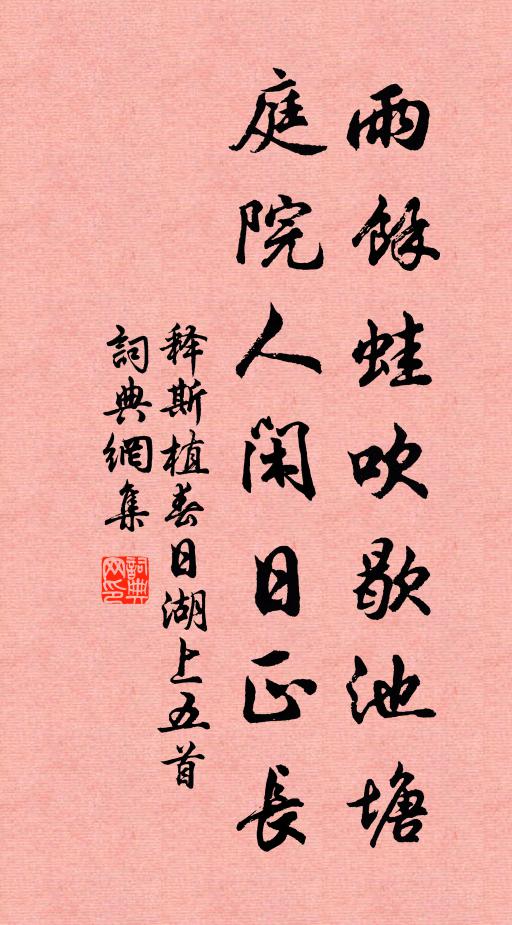 雨餘蛙吹歇池塘
庭院人閑日正長
释斯植春日湖上五首
詞典網集
詞典网印